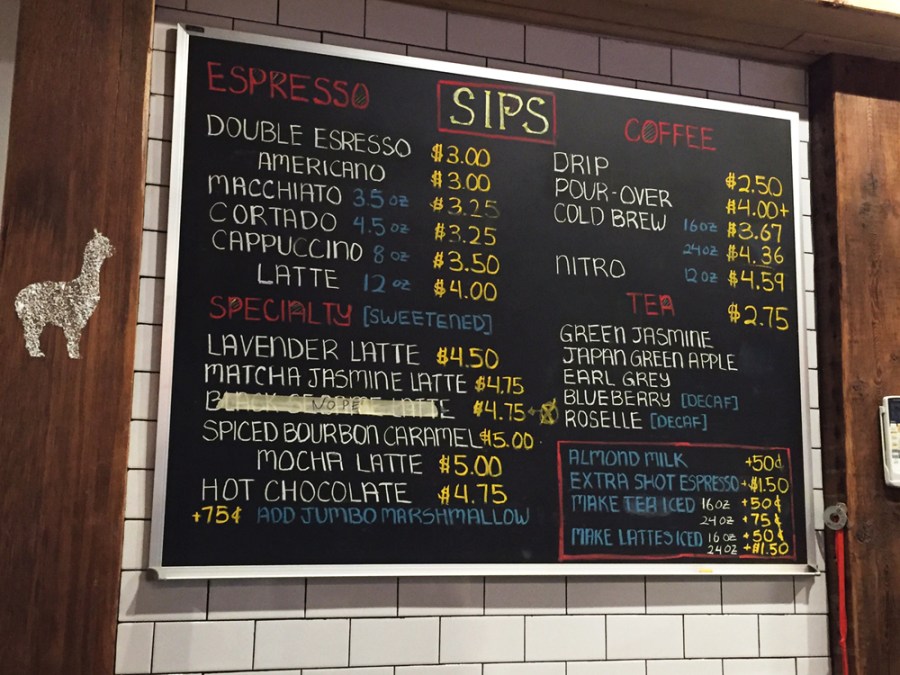 SIPS
ESPRESSO
DOUBLE ESRESSO $3.00
AMERICANO $3.00
MACCHIATO 3.5 oz $3.25
CORTADO 4.5 oz $3.25
CAPPUCCINO 8 oz $3.50
LATTE 12 oz $4.00
SPECIALTY [SWEETENED]
LAVENDER LATTE $4.50
MATCHA JASMINE LATTE $4.75
NOPE LATTE $4.75
SPICED BOURBON CARAMEL $5.00
MOCHA LATTE $5.00
HOT CHOCOLATE $4.75
+75¢ ADD JUMBO MARSHMALLOW
COFFEE
DRIP $2.50
POUR-OVER $4.00+
COLD BREW 16oz $3.67
24oz $4.36
NITRO 12oz $4.59
TEA $2.75
GREEN JASMINE
JAPAN GREEN APPLE
EARL GREY
BLUEBERRY [DECAF]
ROSELLE [DECAF]
ALMOND MILK +50¢
EXTRA SHOT ESPRESSO +$1.50
MAKE TEA ICED 16oz +50¢
24oz +75¢
MAKE LATTES ICED 16oz +50¢
24oz +$1.50